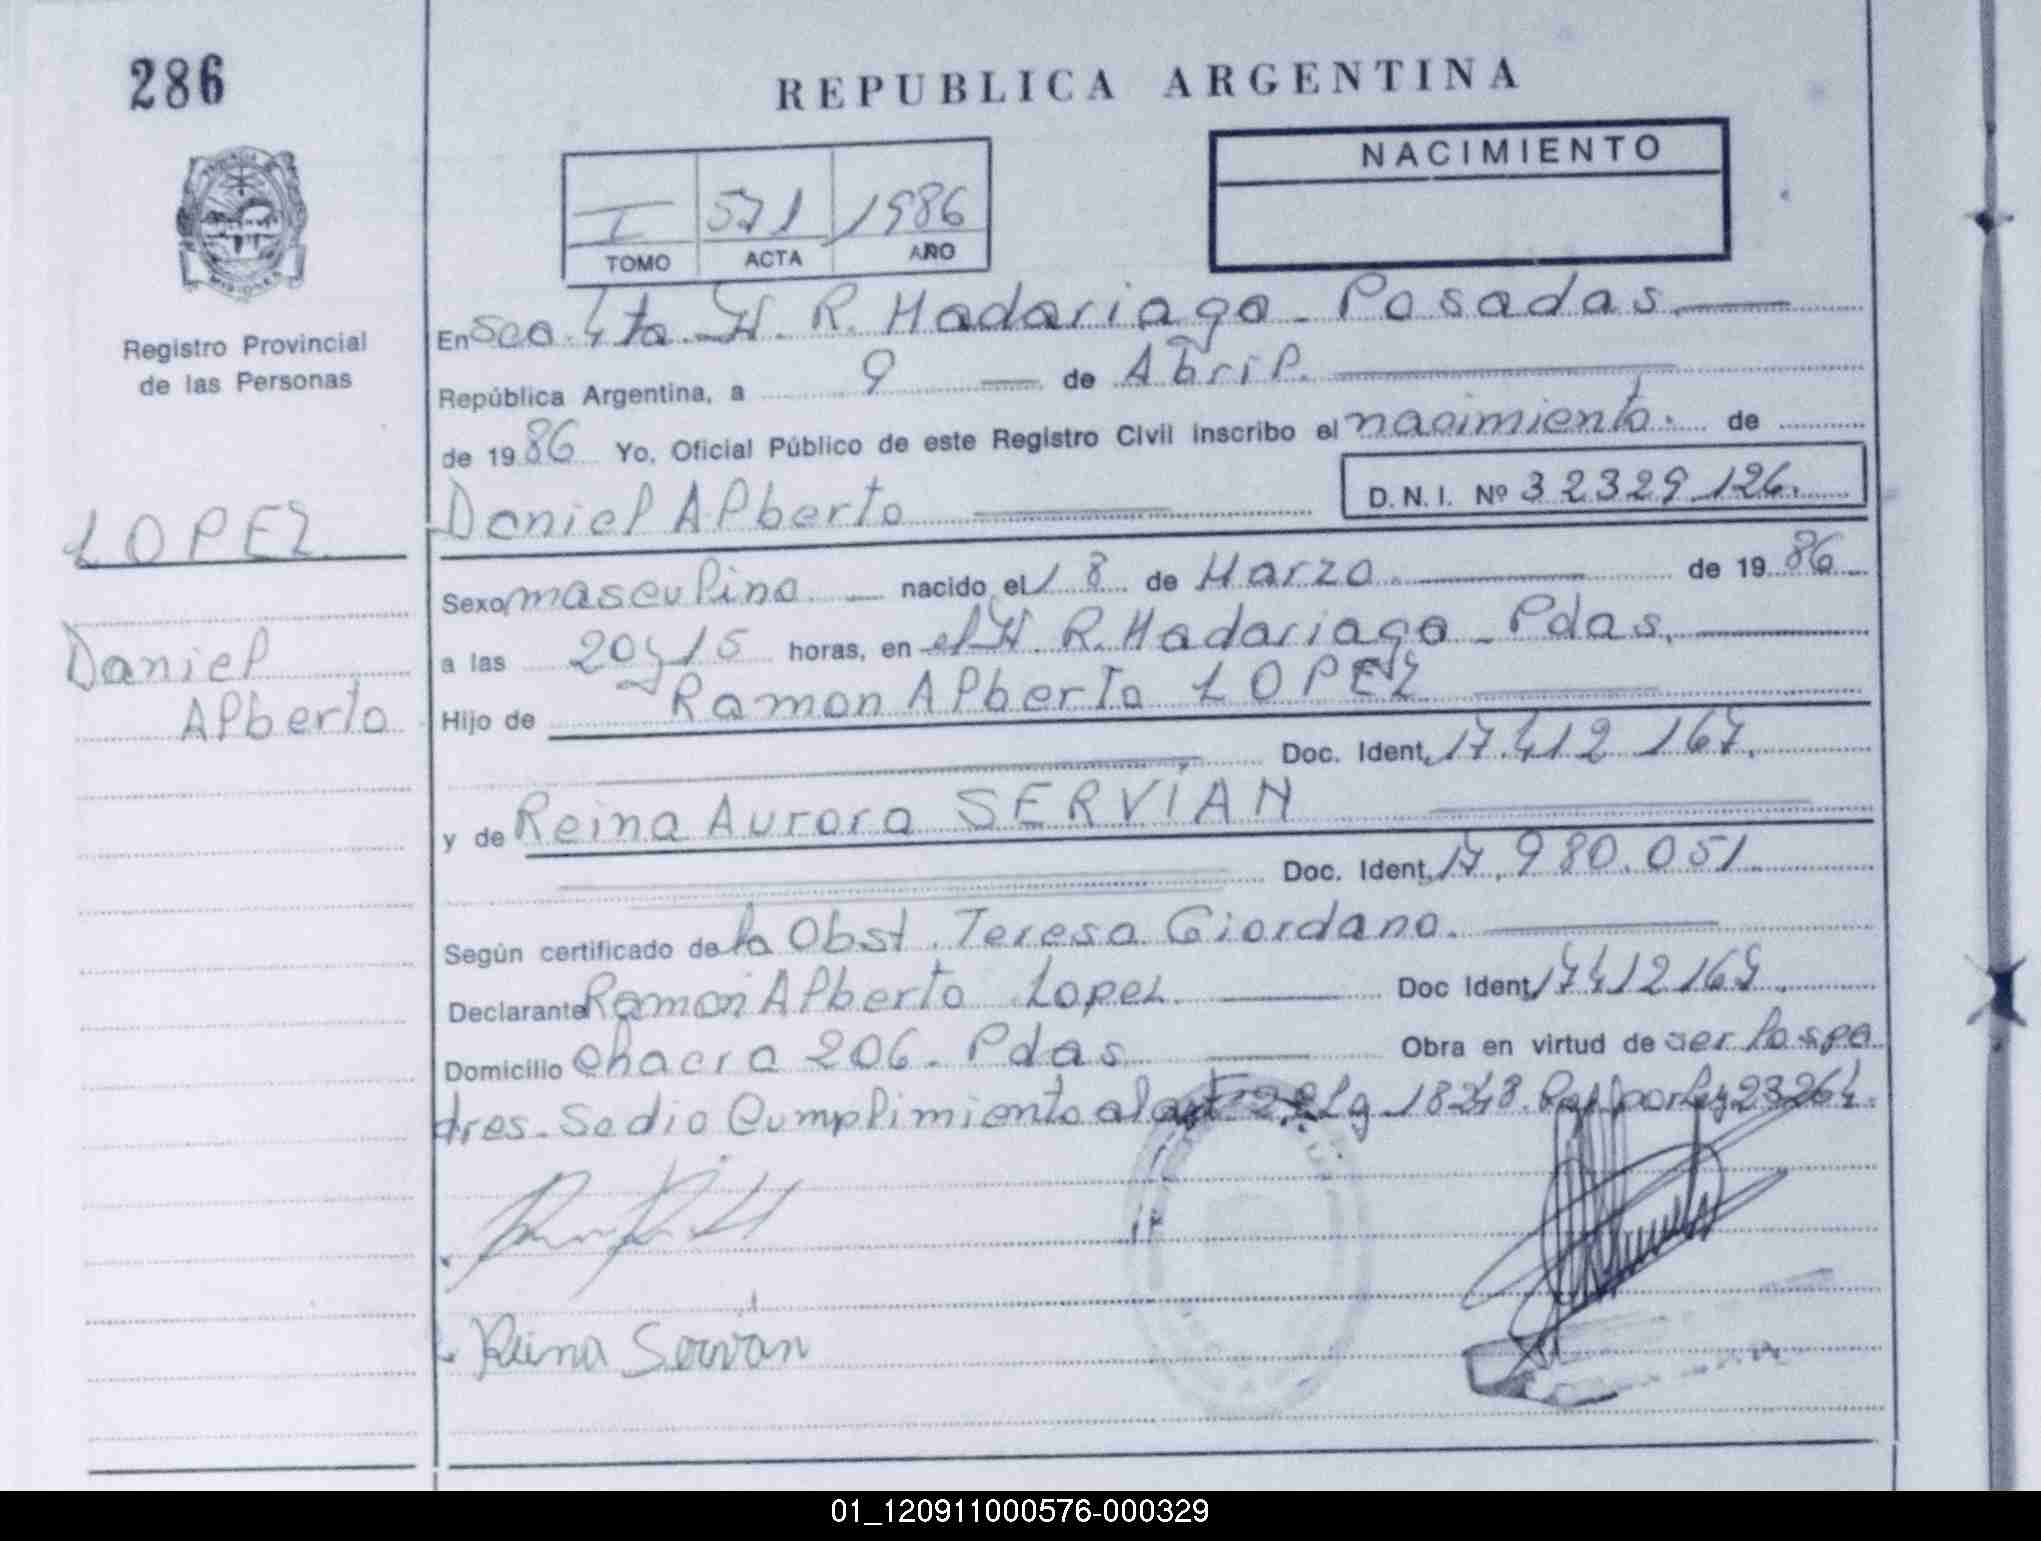 286
REPUBLICA ARGENTINA
NACIMIENTO
I 571 1986
TOMO ACTA AÑO
MISIONES
Registro Provincial
de las Personas
En Sco. 4ta. H. R. Madariaga - Posadas.
República Argentina, a 9 de Abril.
de 1986 Yo, Oficial Público de este Registro Civil inscribo el nacimiento. de
Daniel Alberto D. N. I. Nº 32329126.
LOPEZ
Sexo masculino nacido el 18 de Marzo. de 1986
a las 20 y 15 horas, en el H. R. Madariaga - Pdas.
Daniel
Alberto
Hijo de Ramon Alberto LOPEZ
Doc. Ident. 17.412 167.
y de Reina Aurora SERVIAN
Doc. Ident. 17.980.051
Según certificado de la Obst. Teresa Giordano.
Declarante Ramon Alberto Lopez Doc Ident 17412167.
Domicilio Chacra 206. Pdas Obra en virtud de ser los pa
dres. Se dio Cumplimiento al art 2 18248. por Ley 23264.
Reina Servian
01_120911000576-000329